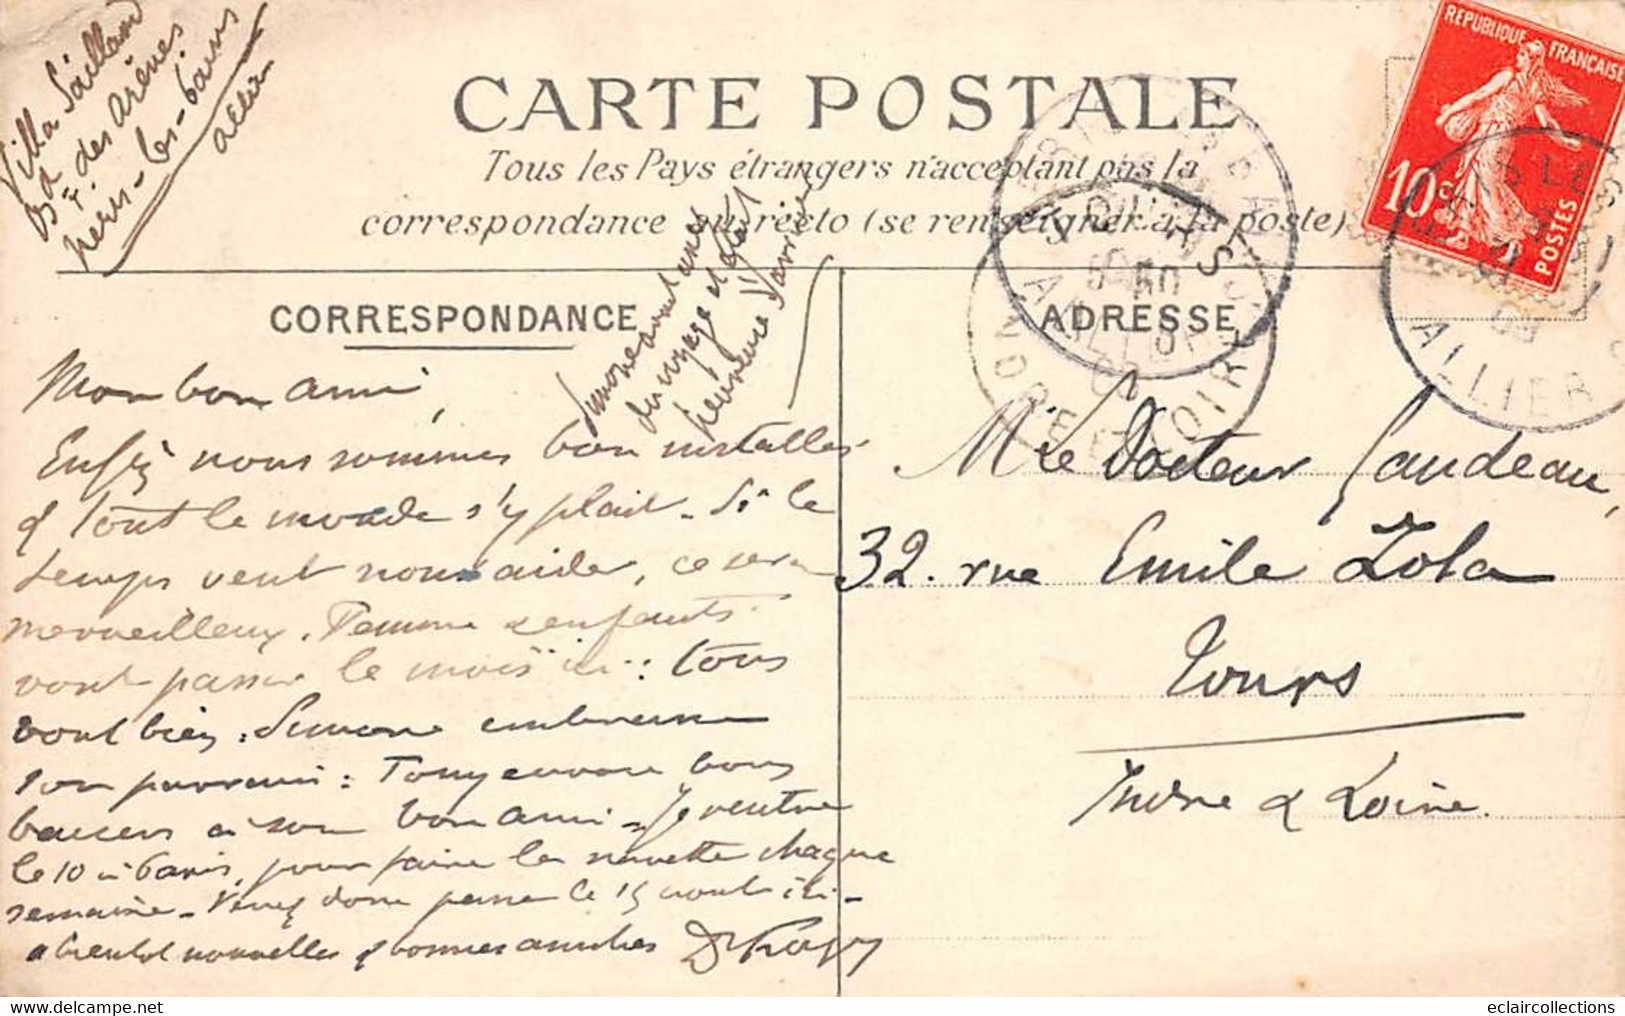 Villa Saillard
Bd des Arènes
Néris-les-bains
Allier
CARTE POSTALE
Tous les Pays étrangers n'acceptant pas la
correspondance au recto (se renseigner à la poste)
REPUBLIQUE FRANÇAISE
10c
POSTES
ALLIER
INDRE ET LOIRE
CORRESPONDANCE
ADRESSE
Simone avant
du voyage et était
heureuse d'arriver
Mon bon ami,
Enfin nous sommes bien installés
& tout le monde s'y plait. Si le
temps veut nous aider, ce sera
merveilleux. Femme & enfants
vont passer le mois ici : tous
vont bien. Simone embrasse
son parrain : Tony envoie bons
baisers à son bon ami. Je rentre
le 10 à Paris, pour faire la navette chaque
semaine. Venez donc passer le 15 août ici.
à bientôt nouvelles & bonnes amitiés
Mr le Docteur Gaudeau,
32. rue Emile Zola
Tours
Indre & Loire.
eclaircollections